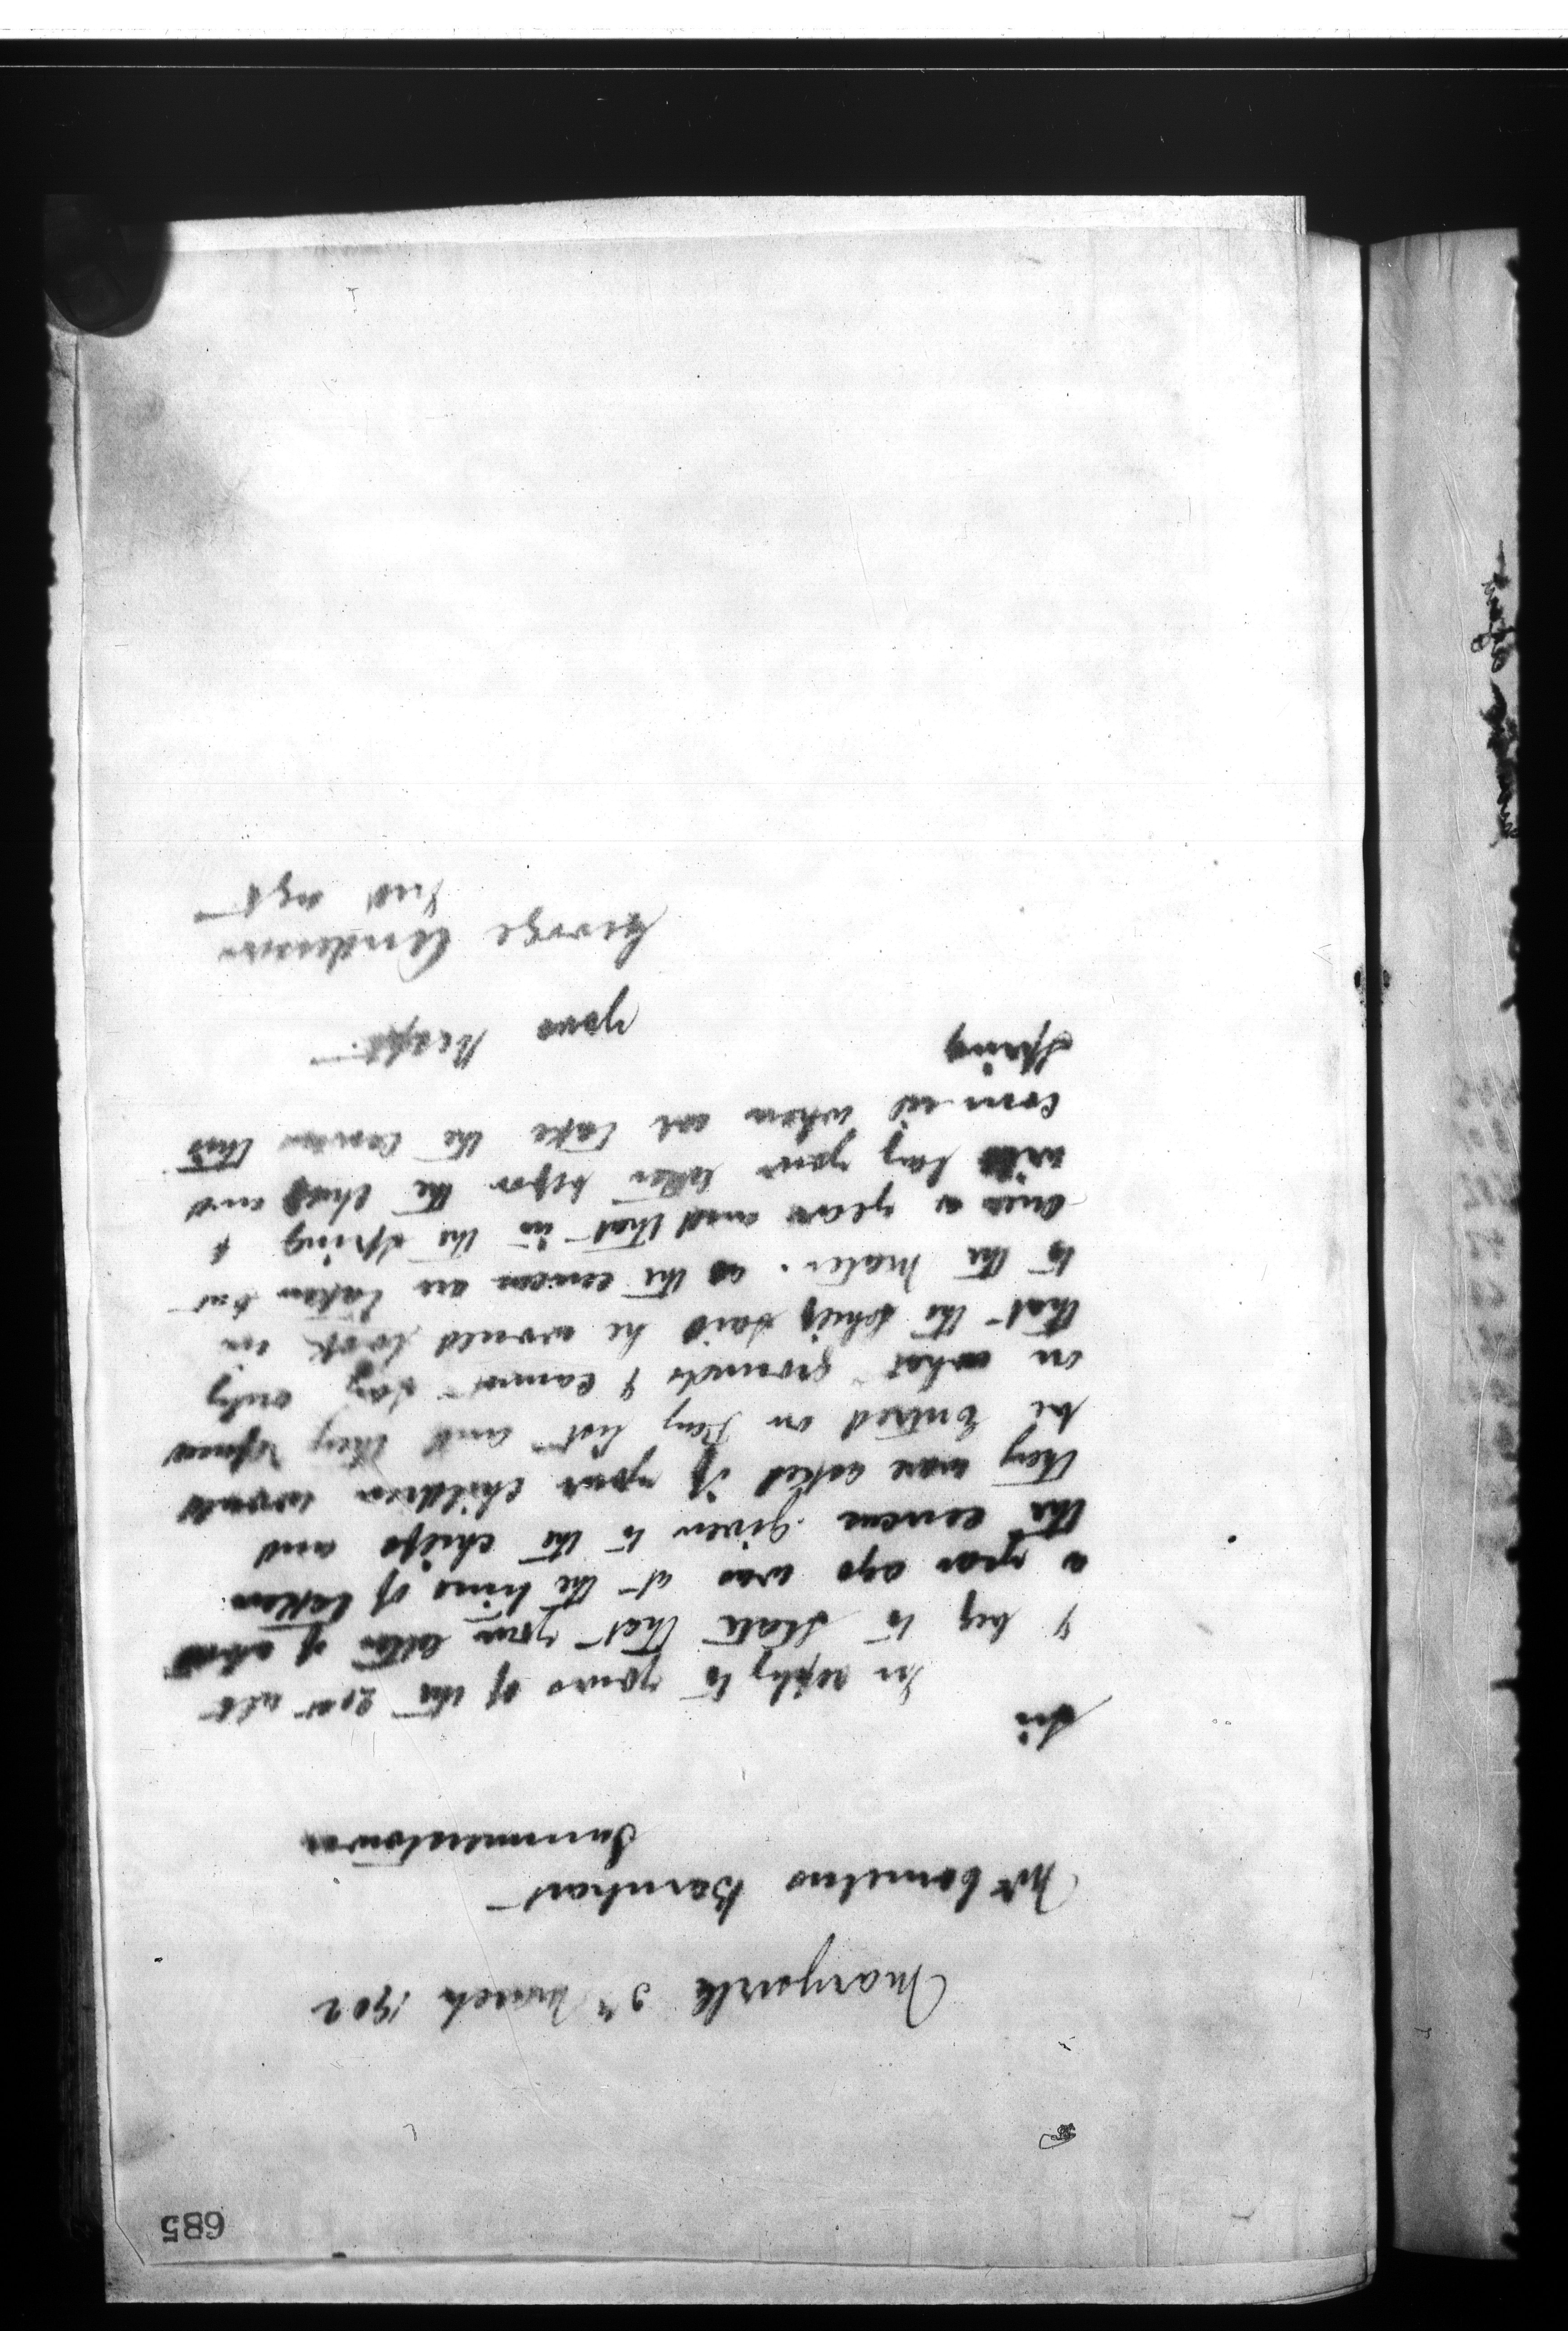 685
Marysville 3rd March 1902
Mr Cornelius Barnhart
Summerstown
Sir
In reply to yours of the 21st ult
I beg to State that your letter of about
a year ago was at the time of taken
the census given to the chiefs and
they ware asked if your children would
be Entred on Pay list and they refused
on what grounds I cannot say only
that the chief said he would look in
to the mater. as the census are taken but
once a year and that in the spring I
will lay your letter befor the chief and
when we take the census this
Spring
yours Respt
George Anderson
Ind agt